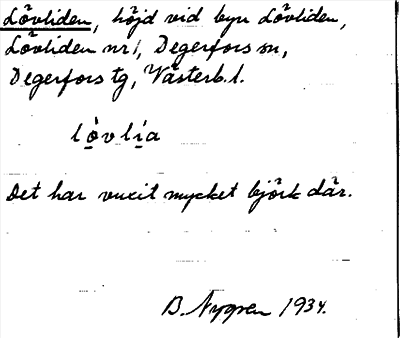 Lövliden, höjd vid byn Lövliden,
Lövliden nr 1, Degerfors sn,
Degerfors tg, Västerb. l.
lò̱vlí̱a
Det har vuxit mycket björk där.
B. Nygren 1934.